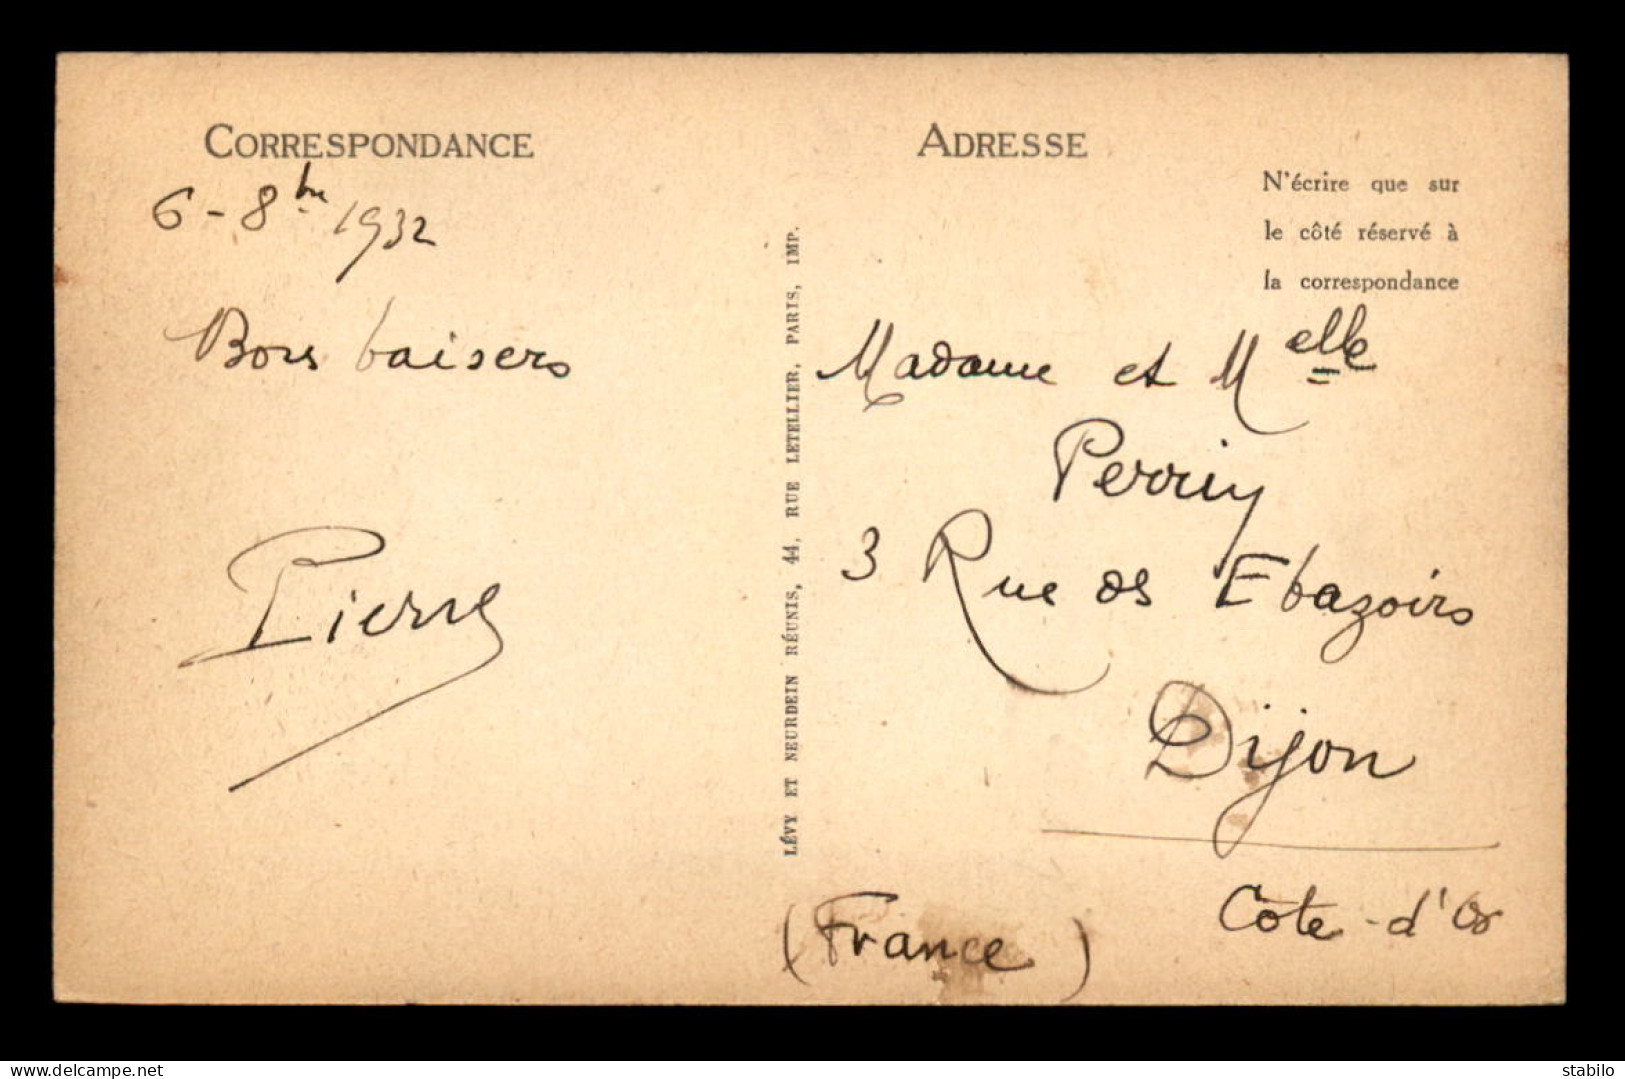 CORRESPONDANCE
6 - 8bre 1932
Bons baisers
Pierre
LÉVY ET NEURDEIN RÉUNIS, 44, RUE LETELLIER, PARIS, IMP.
ADRESSE
N'écrire que sur
le côté réservé à
la correspondance
Madame et Melle
Perriy
3 Rue des Ebazoirs
Dijon
Côte-d'Or
(France)
delcampe.net
stabilo